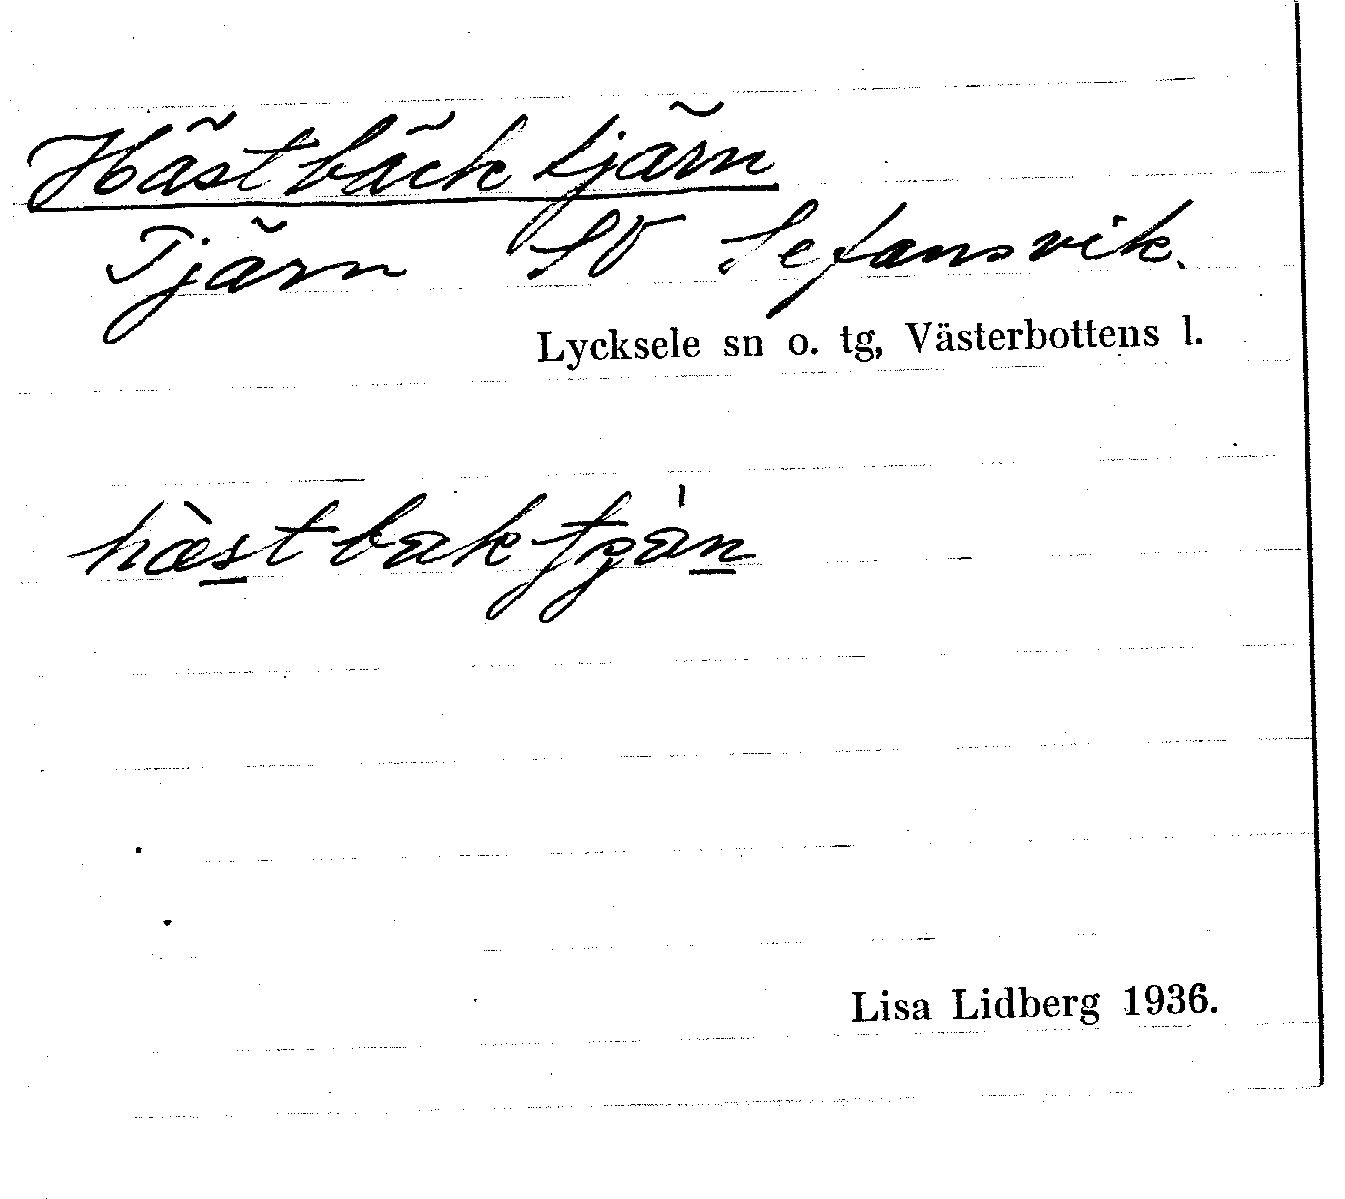 Hästbäcktjärn
Tjärn SV Sefansvik.
Lycksele sn o. tg, Västerbottens l.
Lisa Lidberg 1936.